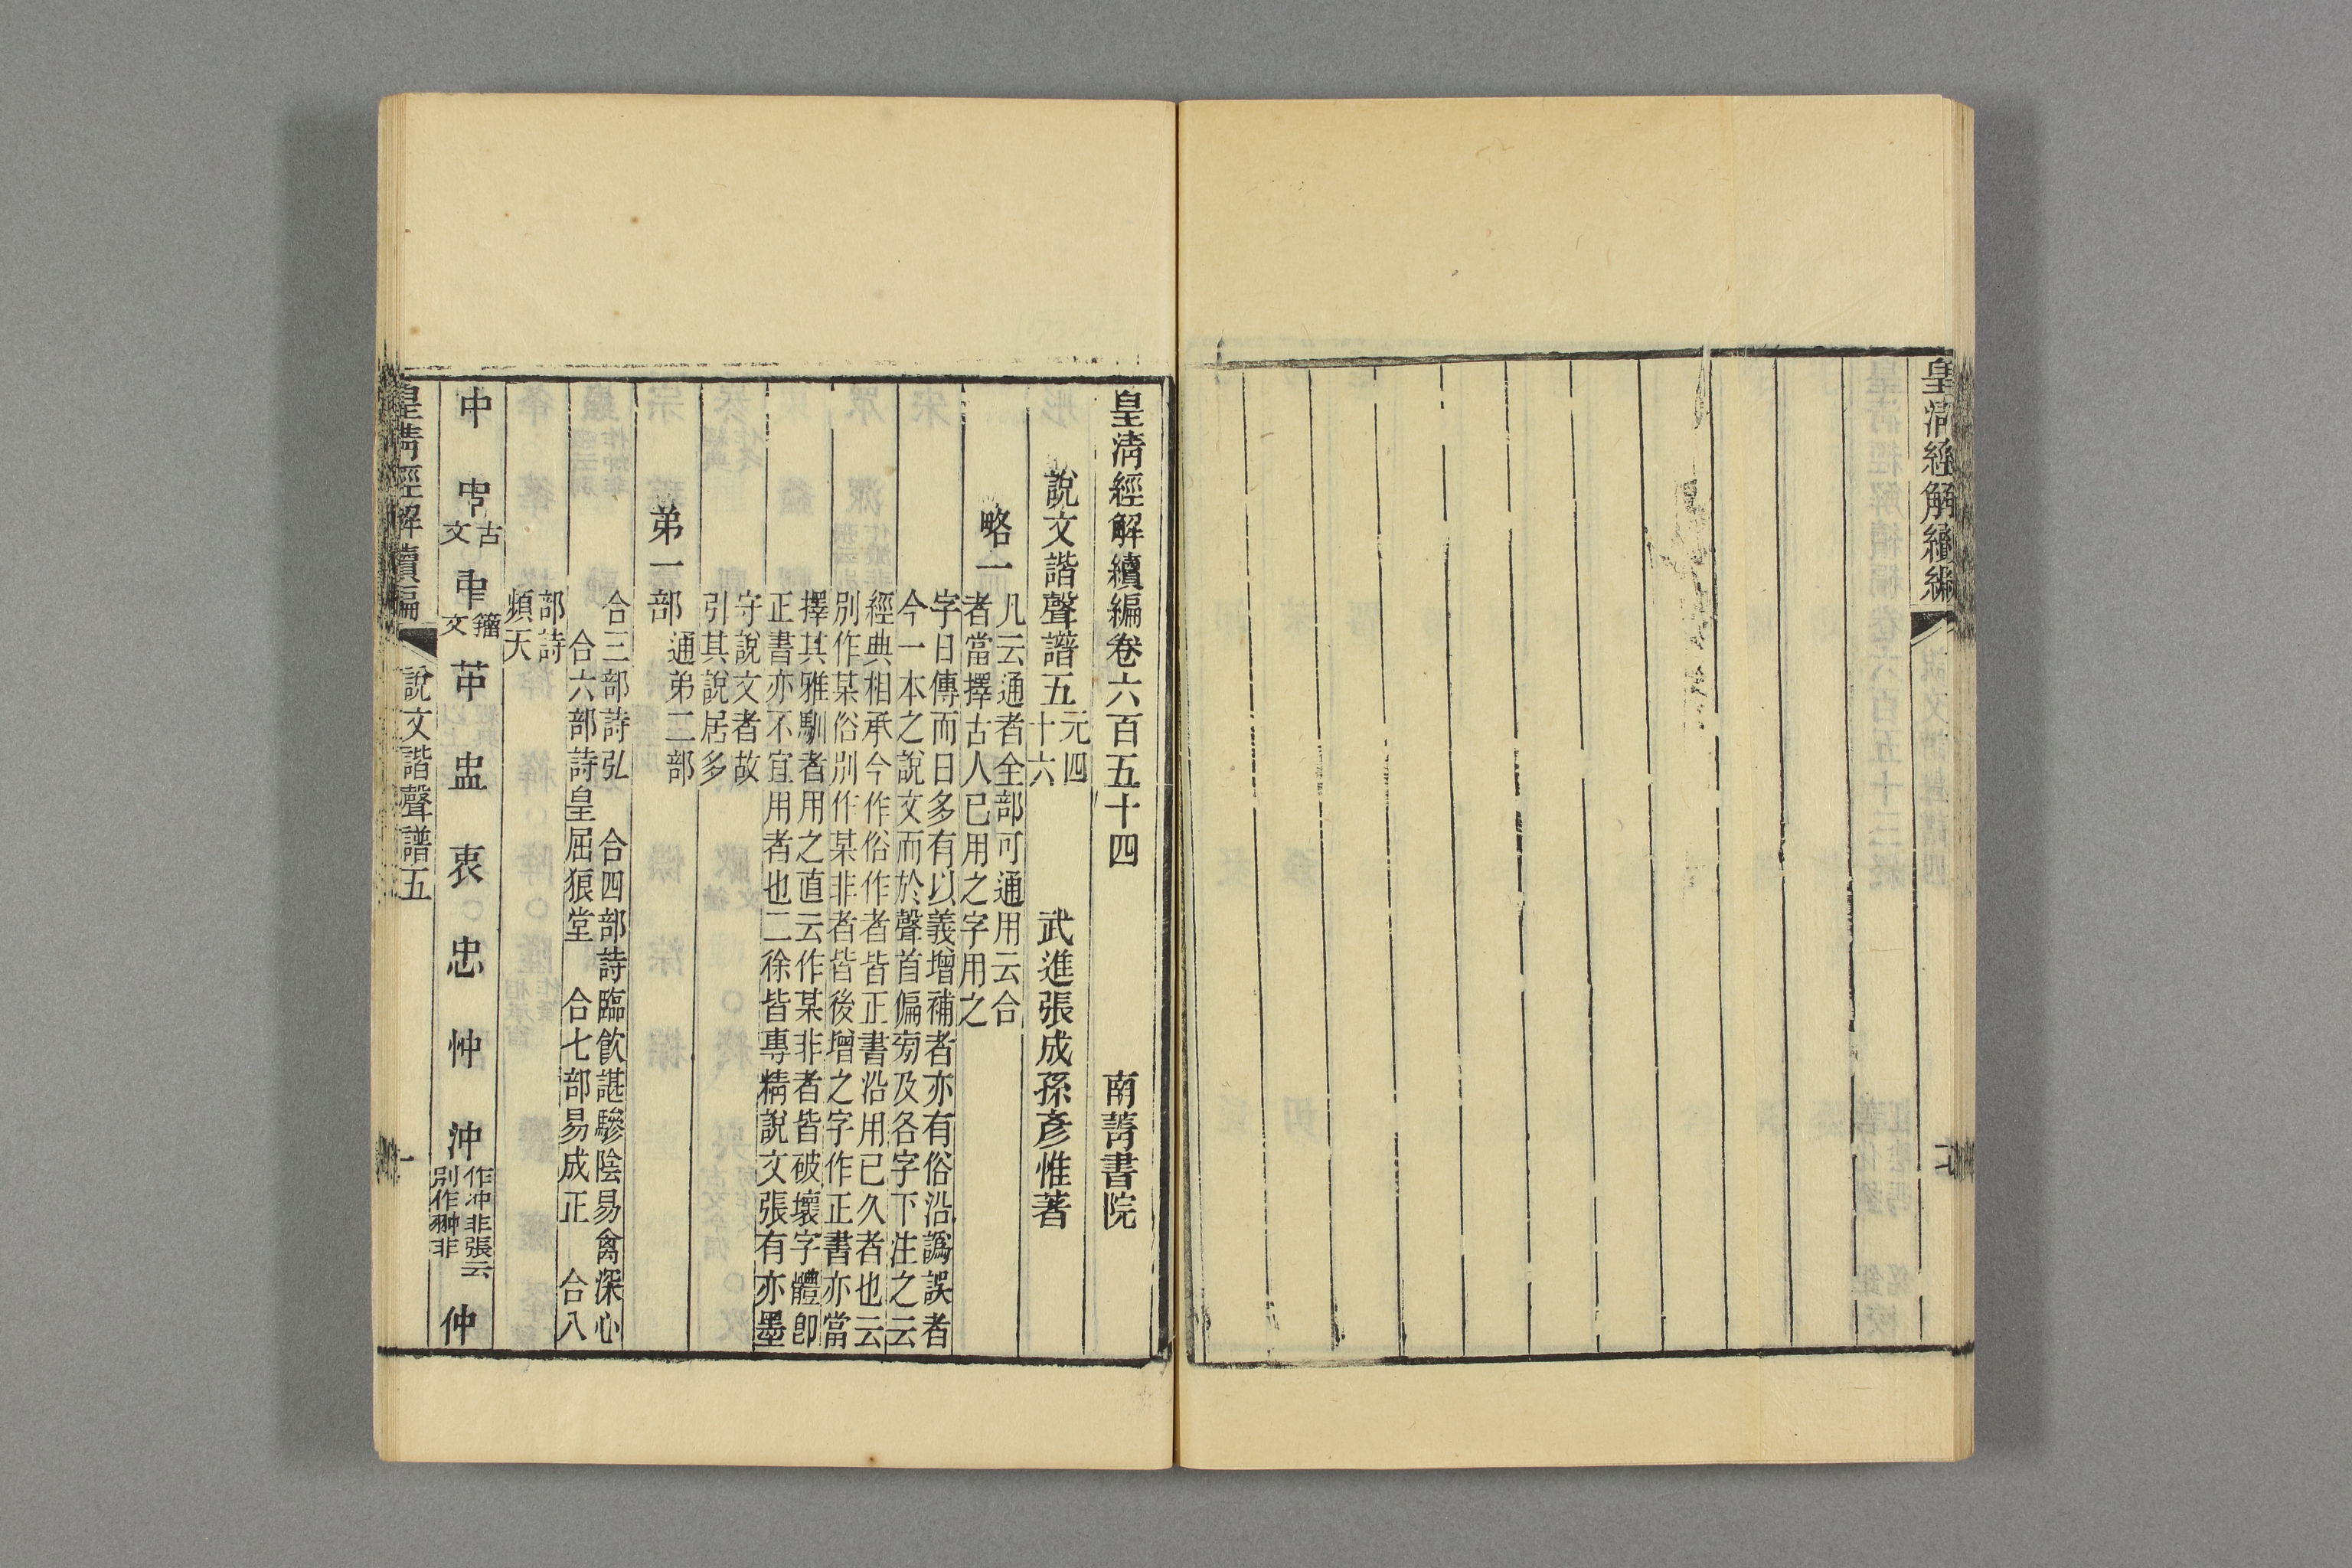 皇清經解續編
皇清經解續編卷六百五十四
南菁書院
說文諧聲譜五
元四
十六
武進張成孫彥惟著
略一
凡云通者全部可通用云合
者當擇古人已用之字用之
字日傳而日多有以義增補者亦有俗沿譌誤者
今一本之說文而於聲首偏㫄及各字下注之云
經典相承今作俗作者皆正書沿用已久者也云
別作某俗別作某非者皆後增之字作正書亦當
擇其雅馴者用之直云作某非者皆破壞字體卽
正書亦不宜用者也二徐皆專精說文張有亦墨
守說文者故
引其說居多
弟一部
通弟二部
合三部詩弘
合四部詩臨飮諶驂陰易禽深心
合六部詩皇屈狼堂
合七部易成正
合八
部詩
頻天
中
𠁧
古文
𠁩
籒文
苹
盅
衷
忠
忡
沖
作冲非張云
別作翀非
仲
皇清經解續編
說文諧聲譜五
一